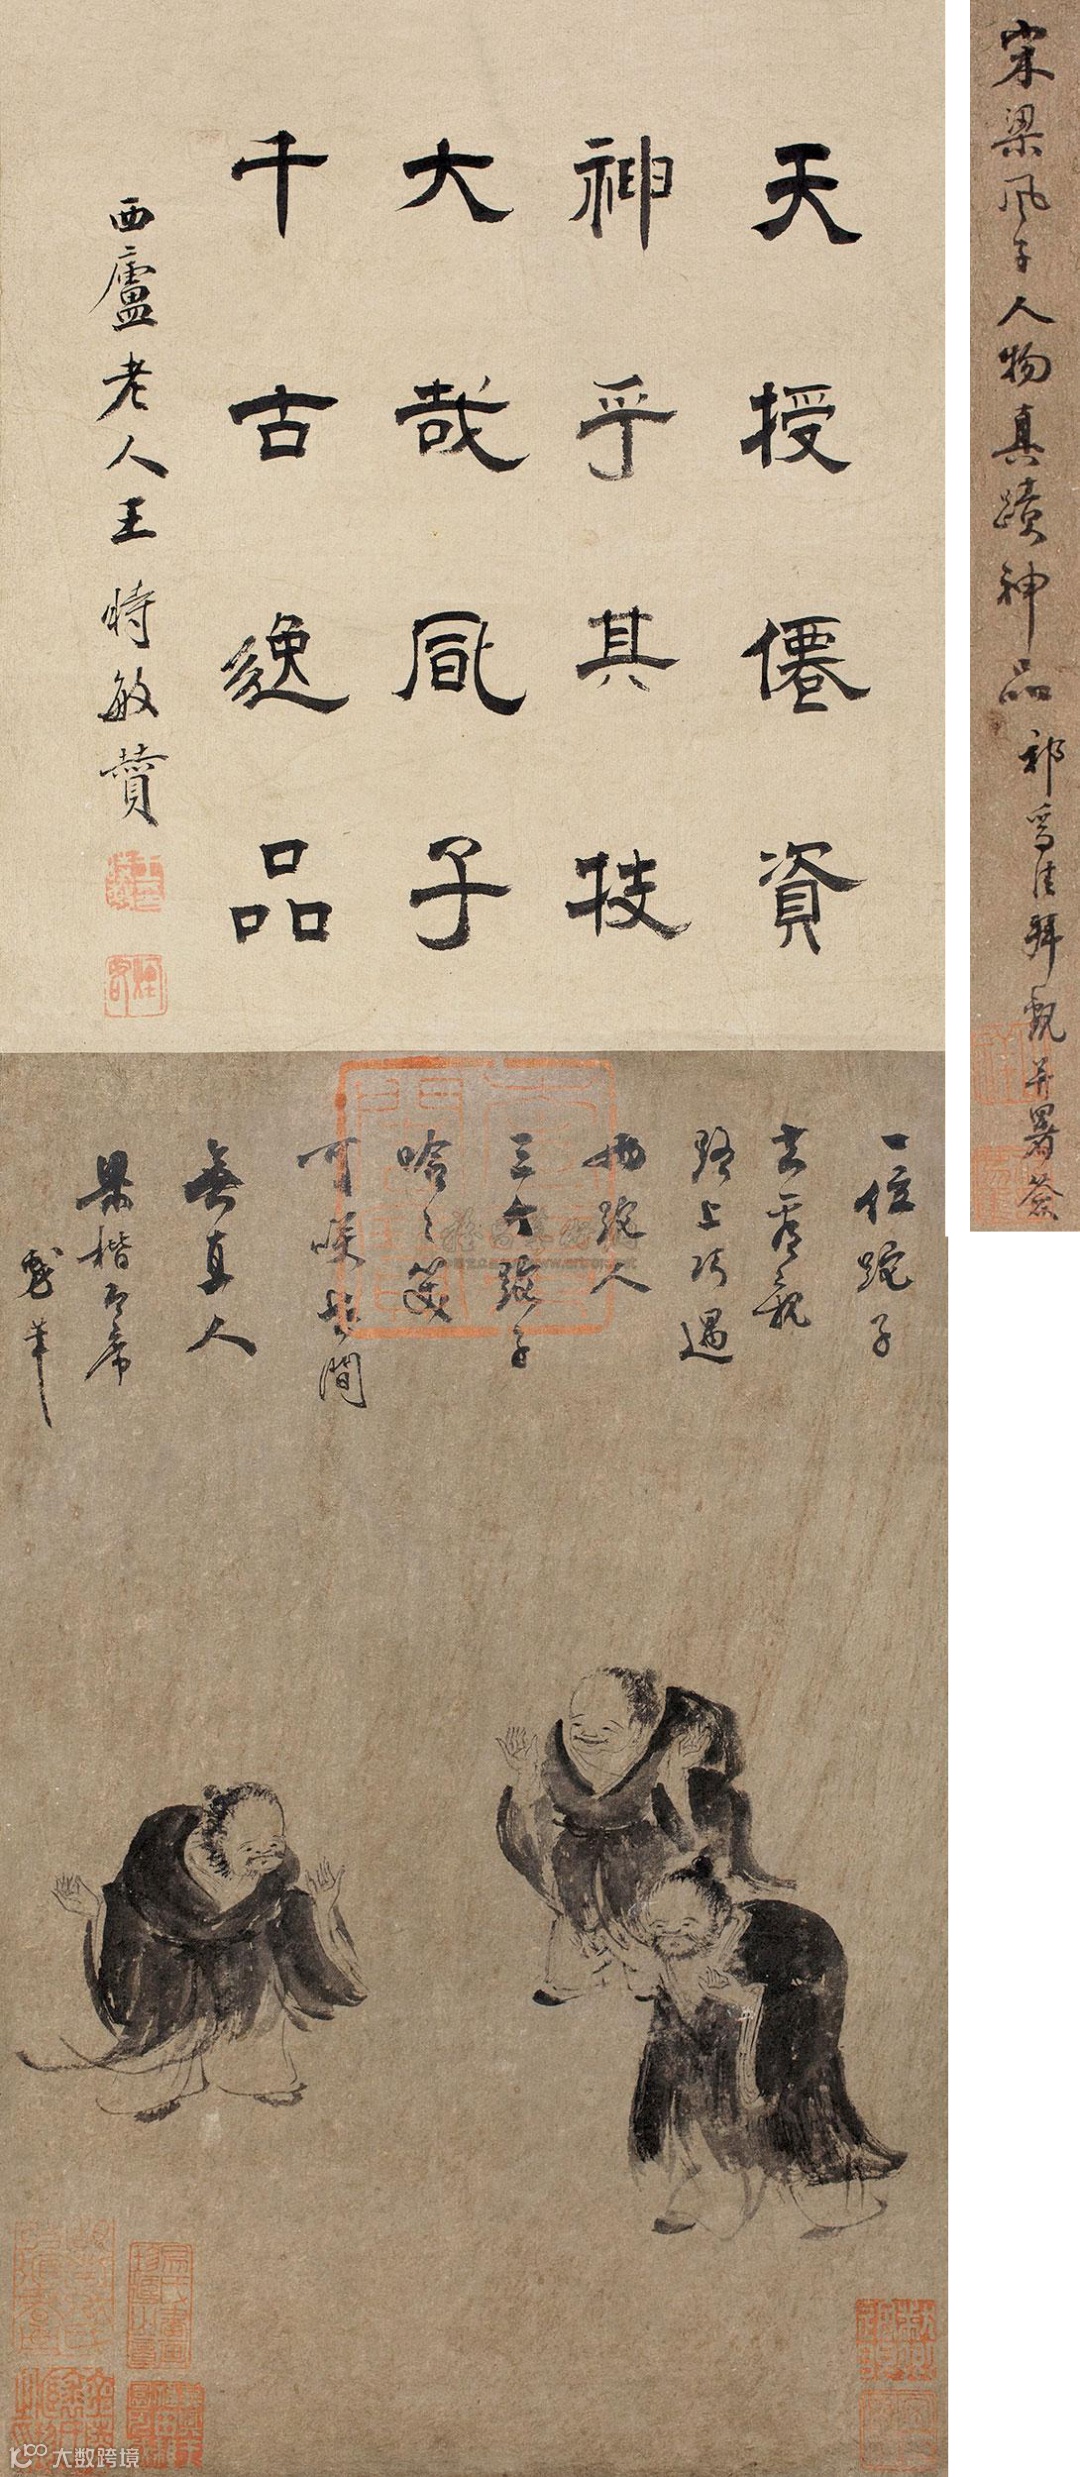 宋梁风子人物真蹟神品
祁豸佳拜觀并署簽
天授僊資
神乎其技
大哉風子
千古逸品
西廬老人王時敏贊
一位駝子
去看親
路上巧遇
兩駝人
三个駝子
哈哈笑
可嘆世間
無直人
梁楷
戲筆
大数跨境